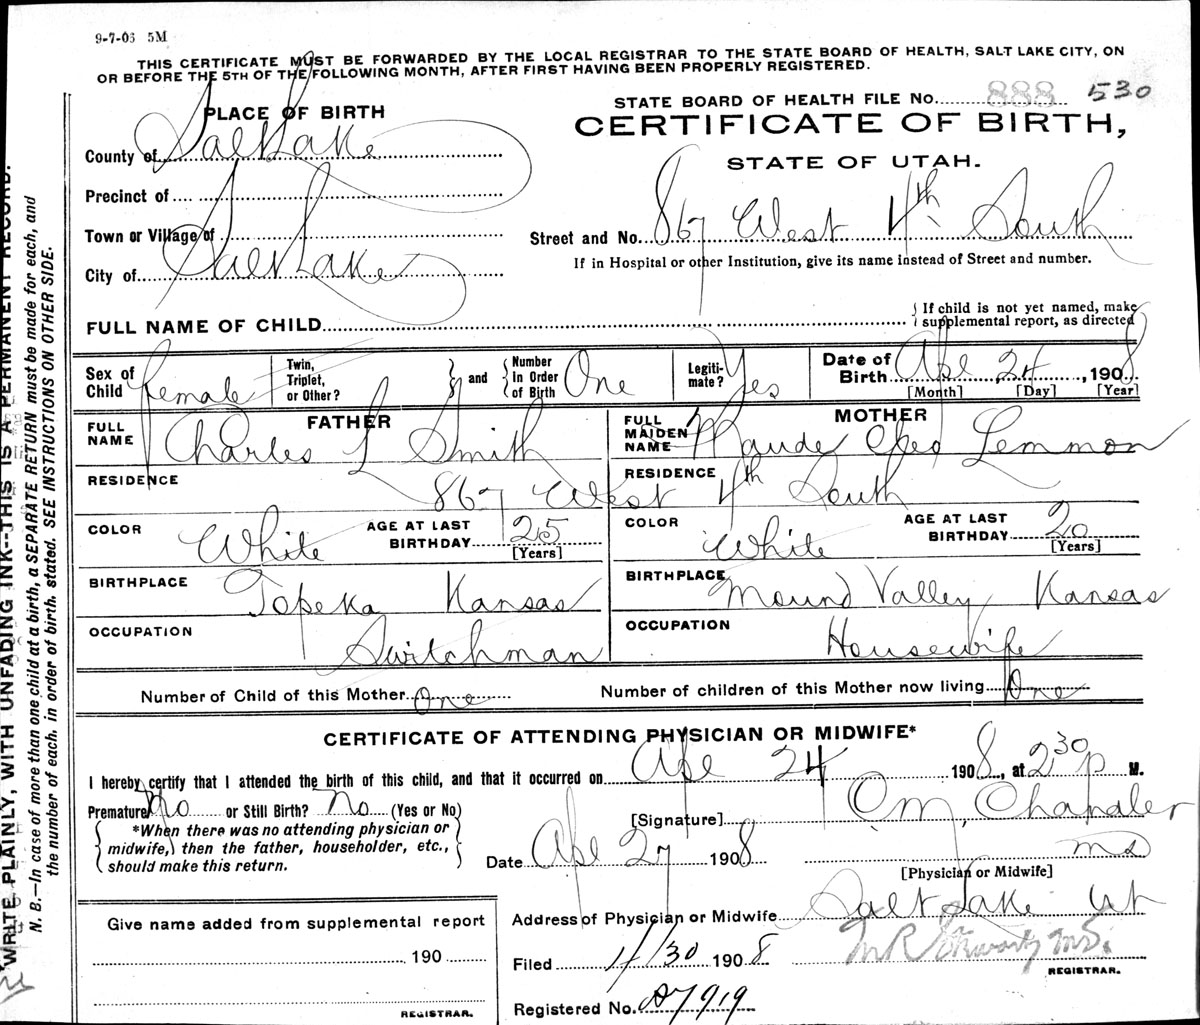 9-7-03 5M
THIS CERTIFICATE MUST BE FORWARDED BY THE LOCAL REGISTRAR TO THE STATE BOARD OF HEALTH, SALT LAKE CITY, ON
OR BEFORE THE 5TH OF THE FOLLOWING MONTH, AFTER FIRST HAVING BEEN PROPERLY REGISTERED.
STATE BOARD OF HEALTH FILE No. 888 530
CERTIFICATE OF BIRTH,
STATE OF UTAH.
PLACE OF BIRTH
County of Salt Lake
Precinct of
Town or Village of
City of Salt Lake
Street and No. 867 West 4th South
If in Hospital or other Institution, give its name instead of Street and number.
FULL NAME OF CHILD
If child is not yet named, make
supplemental report, as directed
Sex of Child Female
Twin, Triplet, or Other?
and
Number In Order of Birth One
Legiti-mate? Yes
Date of Birth Apl 24, 1908
[Month] [Day] [Year]
FATHER
FULL NAME Charles L Smith
MOTHER
FULL MAIDEN NAME Maude Cleo Lemmon
RESIDENCE
RESIDENCE
867 West 4th South
COLOR White
AGE AT LAST BIRTHDAY 25
[Years]
COLOR White
AGE AT LAST BIRTHDAY 20
[Years]
BIRTHPLACE Topeka Kansas
BIRTHPLACE Mound Valley Kansas
OCCUPATION Switchman
OCCUPATION Housewife
Number of Child of this Mother One
Number of children of this Mother now living One
CERTIFICATE OF ATTENDING PHYSICIAN OR MIDWIFE*
I hereby certify that I attended the birth of this child, and that it occurred on Apl 24 1908, at 2 30 p M.
Premature No or Still Birth? No (Yes or No)
*When there was no attending physician or
midwife, then the father, householder, etc.,
should make this return.
[Signature] O M, Chandler
Date Apl 27 1908
MD
[Physician or Midwife]
Address of Physician or Midwife Salt Lake Ut
Give name added from supplemental report
190
REGISTRAR.
Filed 4/30 1908
M R Stewart MD.
REGISTRAR.
Registered No. A7919
WRITE PLAINLY, WITH UNFADING INK--THIS IS A PERMANENT RECORD.
N. B.—In case of more than one child at a birth, a SEPARATE RETURN must be made for each, and
the number of each, in order of birth, stated. SEE INSTRUCTIONS ON OTHER SIDE.